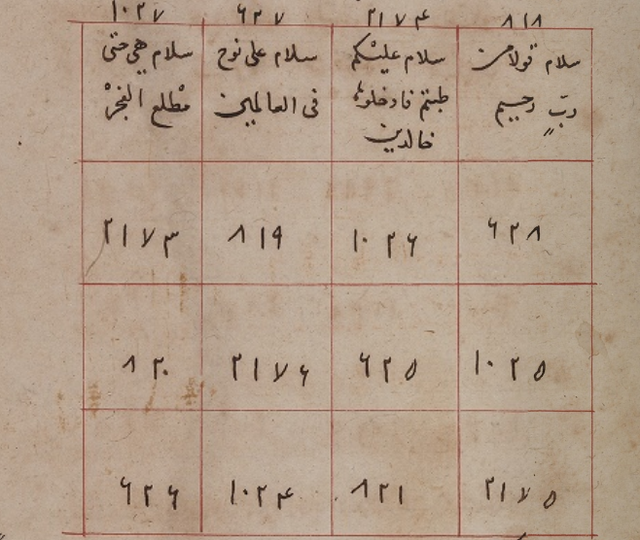 ٨١٨ ٢١٧٤ ٦٢٧ ١٠٢٧
سلام قولا من
ربٍّ رحيم
سلام عليكم
طبتم فادخلوها
خالدين
سلام على نوح
فى العالمين
سلام هى حتى
مطلع الفجر
٦٢٨ ١٠٢٦ ٨١٩ ٢١٧٣
١٠٢٥ ٦٢٥ ٢١٧٦ ٨٢٠
٢١٧٥ ٨٢١ ١٠٢٤ ٦٢٦